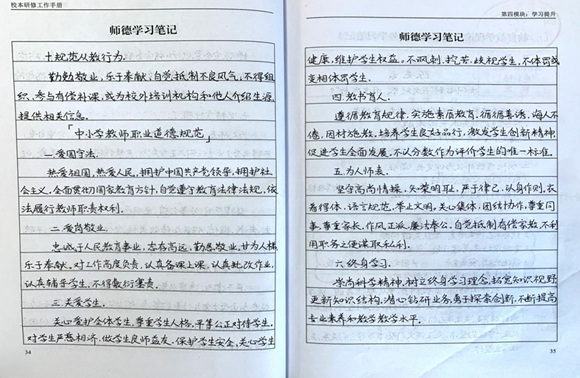 校本研修工作手册
师德学习笔记
十.规范从教行为.
勤勉敬业,乐于奉献,自觉抵制不良风气,不得组
织、参与有偿补课,或为校外培训机构和他人介绍生源、
提供相关信息.
「中小学教师职业道德规范」
一.爱国守法.
热爱祖国,热爱人民,拥护中国共产党领导,拥护社
会主义.全面贯彻国家教育方针,自觉遵守教育法律法规,依
法履行教师职责权利.
二.爱岗敬业.
忠诚于人民教育事业,志存高远,勤恳敬业,甘为人梯,
乐于奉献.对工作高度负责,认真备课上课,认真批改作业,
认真辅导学生,不得敷衍塞责.
三.关爱学生.
关心爱护全体学生,尊重学生人格,平等公正对待学生.
对学生严慈相济,做学生良师益友,保护学生安全,关心学生
34
第四模块:学习提升
师德学习笔记
健康,维护学生权益.不讽刺、挖苦、歧视学生,不体罚或
变相体罚学生.
四.教书育人.
遵循教育规律,实施素质教育,循循善诱,诲人不
倦,因材施教,培养学生良好品行,激发学生创新精神,
促进学生全面发展,不以分数作为评价学生的唯一标准.
五.为人师表.
坚守高尚情操,知荣明耻,严于律己,以身作则,衣
着得体,语言规范,举止文明,关心集体,团结协作,尊重同
事,尊重家长,作风正派,廉洁奉公,自觉抵制有偿家教,不利
用职务之便谋取私利.
六.终身学习.
崇尚科学精神,树立终身学习理念,拓宽知识视野,
更新知识结构,潜心钻研业务,勇于探索创新,不断提高
专业素养和教学教学水平.
35